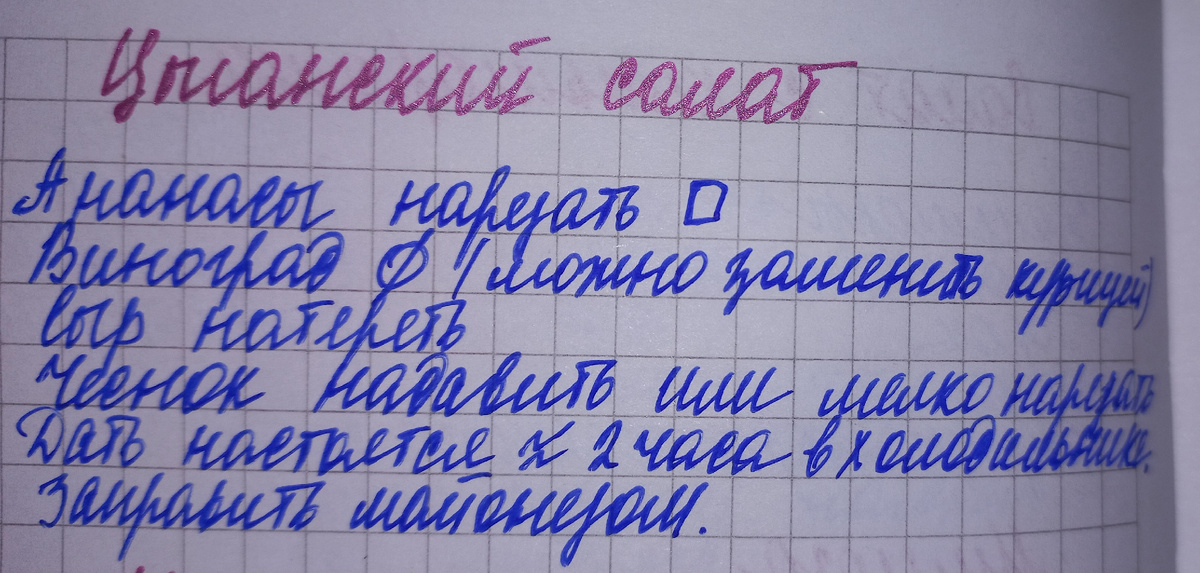 Цыганский салат
Ананасы нарезать □
Виноград ∅ (можно заменить курицей)
Сыр натереть
Чеснок надавить или мелко нарезать
Дать настоятся ≈ 2 часа в холодильнике.
Заправить майонезом.